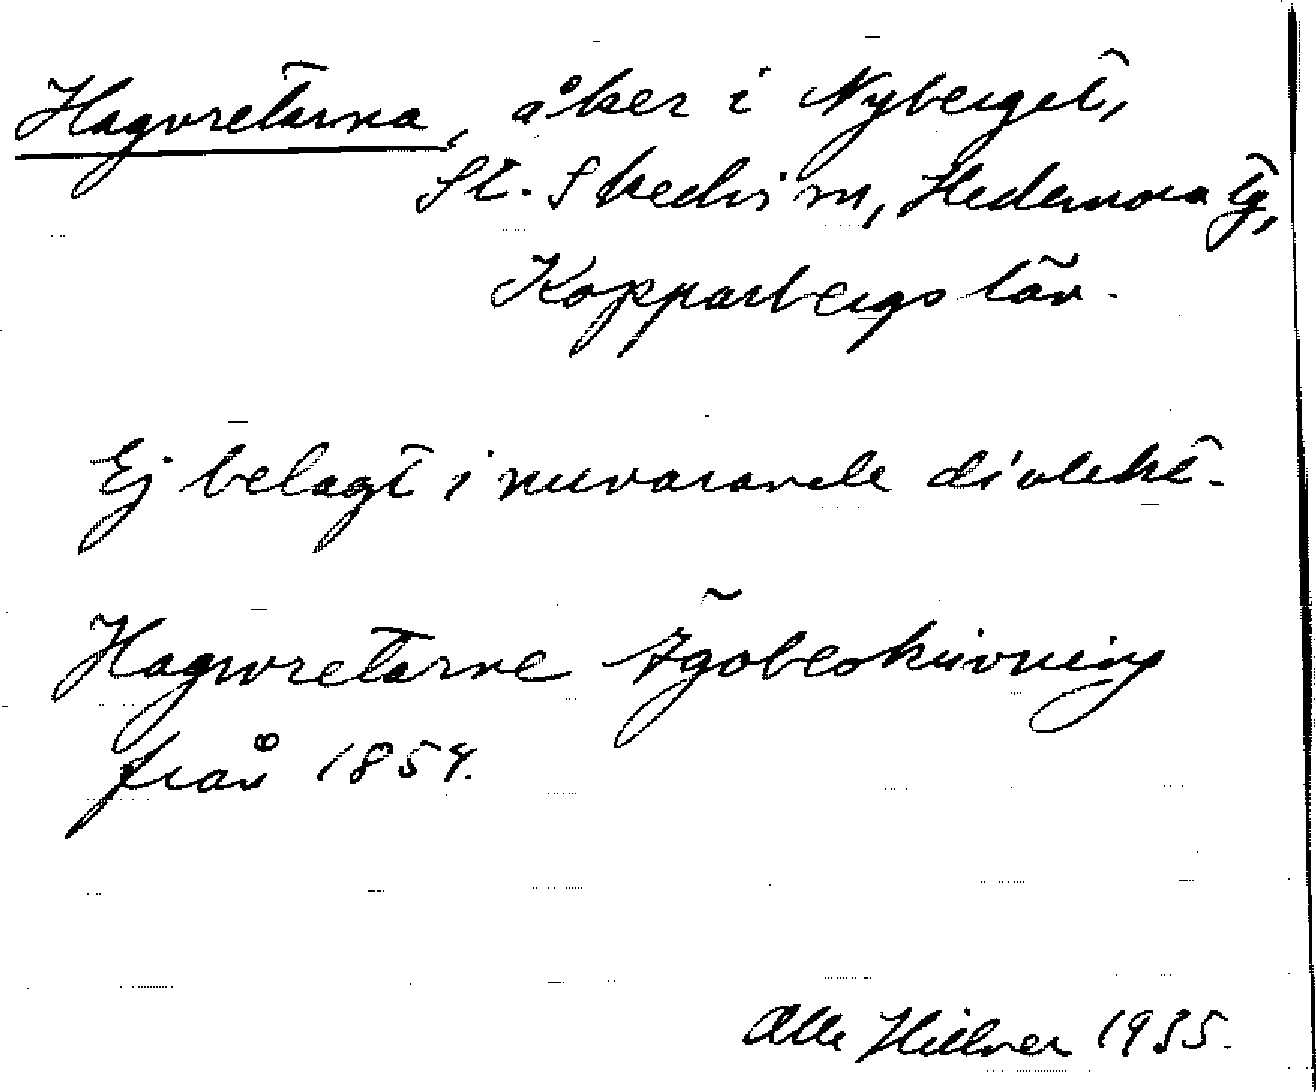 Hagvretarna, åker i Nyberget,
St. Skedvi sn, Hedemora tg,
Kopparbergs län.
Ej belagt i nuvarande dialekt.
Hagvretarne Ägobeskrivning
från 1854.
Olle Hillner 1935.